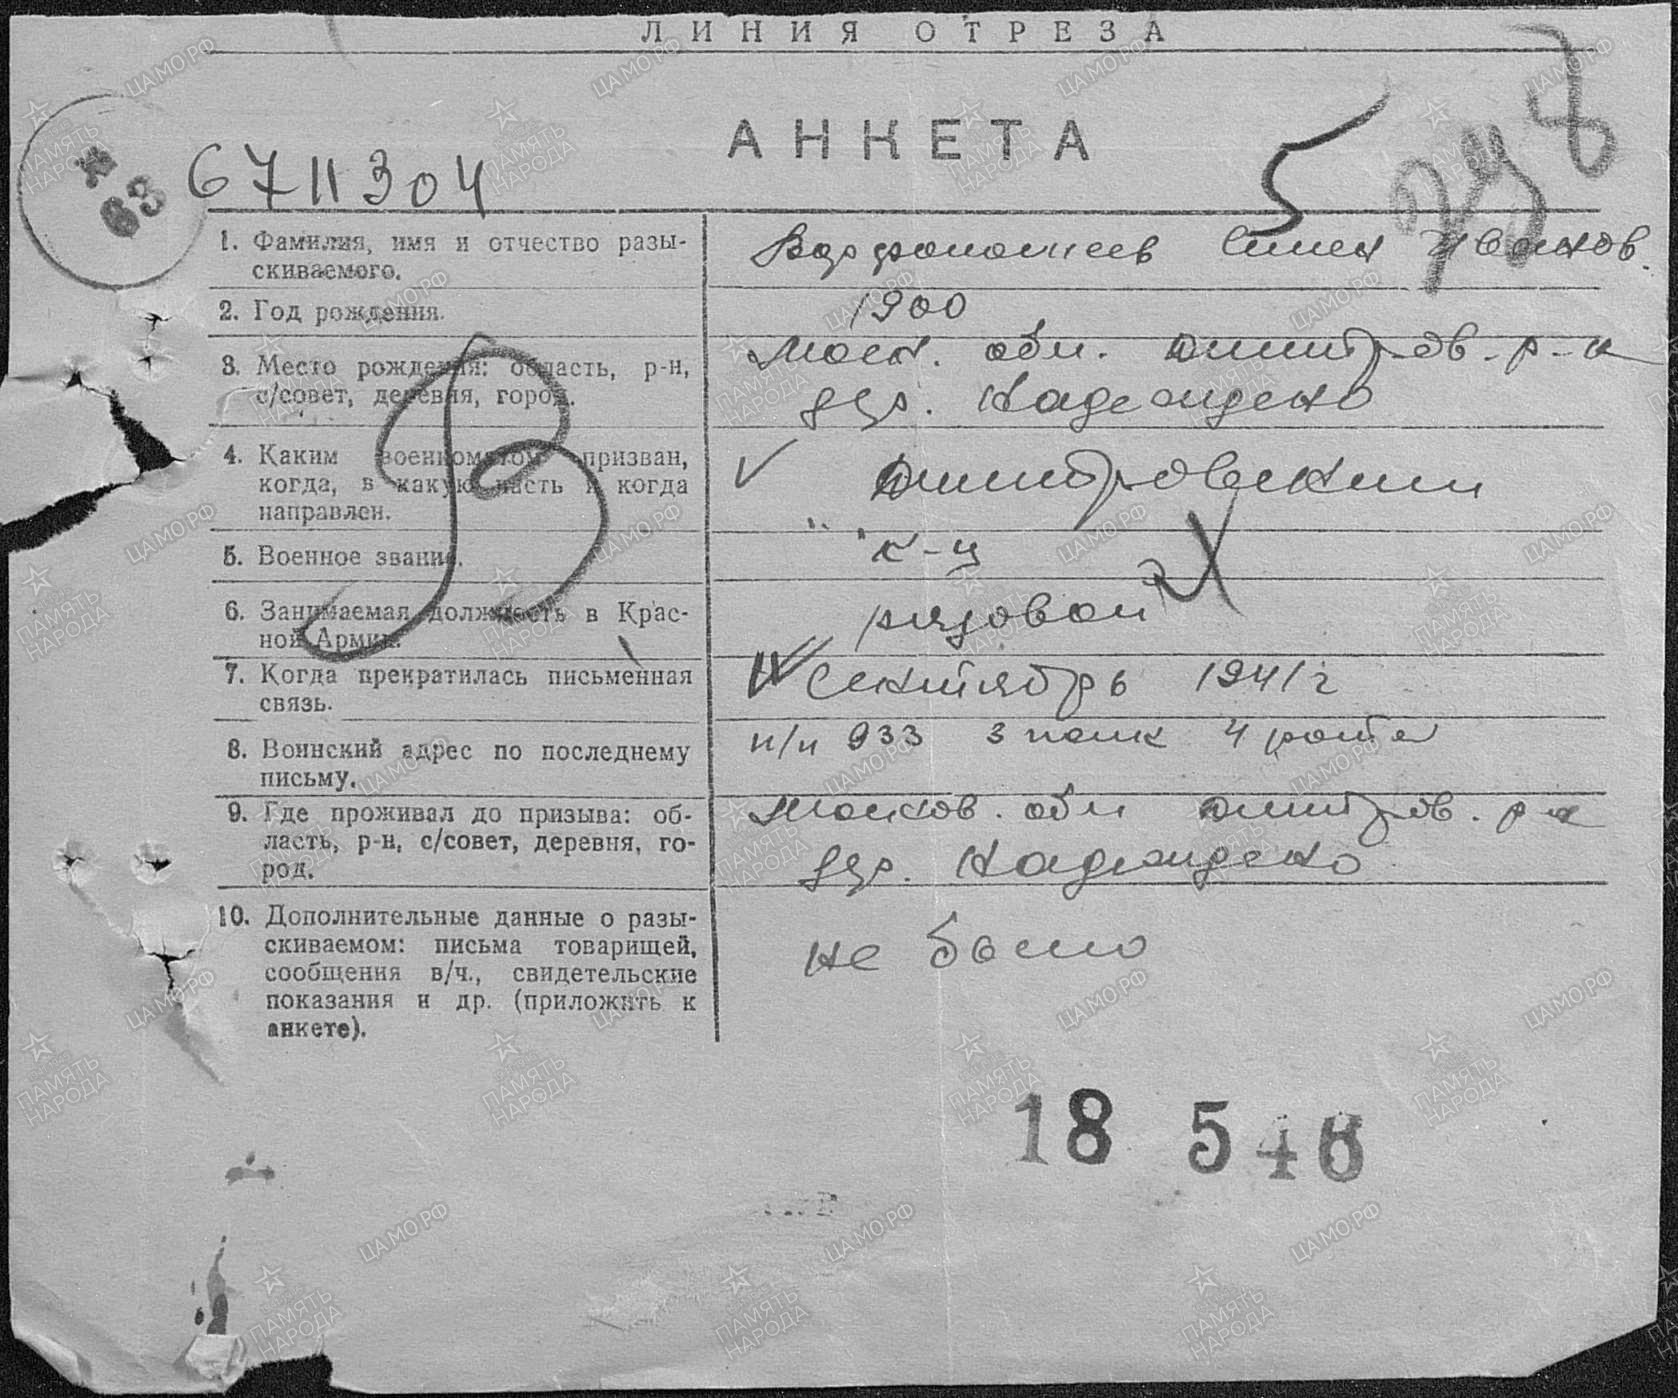 ЛИНИЯ ОТРЕЗА
АНКЕТА
* 63
6711304
5
1. Фамилия, имя и отчество разы-
скиваемого.
Иванов.
2. Год рождения.
1900
3. Место рождения: область, р-н,
с/совет, деревня, город.
Моск. обл. Дмитров. р-н
дер. Надеждено
4. Каким военкоматом призван,
когда, в какую часть и когда
направлен.
Дмитровским
5. Военное звание.
к-ц
6. Занимаемая должность в Крас-
ной Армии.
рядовой
7. Когда прекратилась письменная
связь.
Сентябрь 1941 г
8. Воинский адрес по последнему
письму.
п/п 933 3 полк 4 рота
9. Где проживал до призыва: об-
ласть, р-н, с/совет, деревня, го-
род.
Москов. обл Дмитров. р-н
дер. Надеждено
10. Дополнительные данные о разы-
скиваемом: письма товарищей,
сообщения в/ч., свидетельские
показания и др. (приложить к
анкете).
не было
В
18 546
ПАМЯТЬ НАРОДА
ЦАМО.РФ